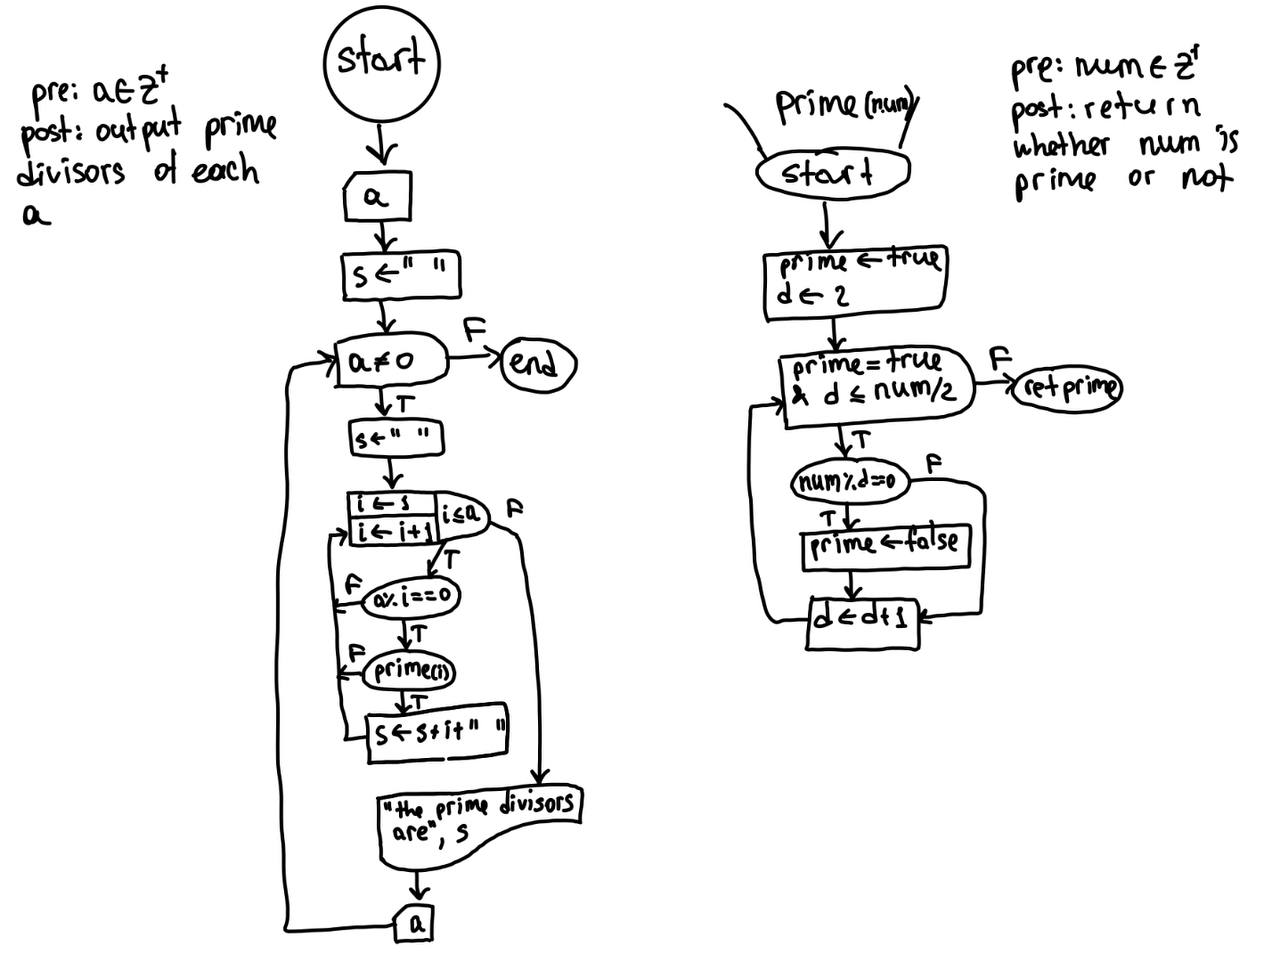 start
pre: a∈Z⁺
post: output prime
divisors of each
a
a
s←" "
a≠0
F
end
T
s←" "
i←1
i←i+1
i≤a
F
T
a%i==0
F
T
prime(i)
F
T
s←s+i+" "
"the prime divisors
are", s
a
prime(num)
start
pre: num∈Z⁺
post: return
whether num is
prime or not
prime←true
d←2
prime=true
& d≤num/2
F
ret prime
T
num%d==0
F
T
prime←false
d←d+1